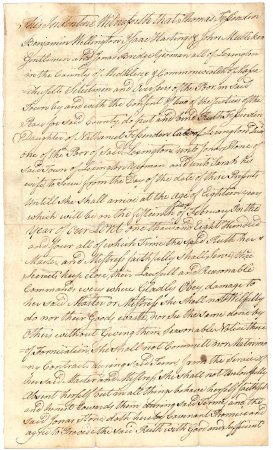 This Indenture Witnesseth that Thomas Fessenden
Benjamin Wellington Isaac Hastings & John Mulliken
Gentlemen and Jonas Bridge Yeoman all of Lexington
in the County of Middlesex & Commonwealth of Massa
chusetts Selectmen and Overseers of the Poor in Said
Town by and with the Consent of two of the Justices of the
Peace for Said County do put and bind Ruth Fessenden
Daughter of Nathaniel Fessenden late of Lexington Dec
one of the Poor of Said Lexington unto Jonas Stone
of Said Town of Lexington Yeoman and unto Sarah his
wife to Serve from the Day of the date of these Presents
Until She Shall arrive at the age of Eighteen years
which will be on the fifteenth of February In the
Year of our Lord one thousand Eight hundred
and four all of which Time the Said Ruth her s
Master and Mistress faithfully Shall Serve their
Secrets keep close their Lawfull and Reasonable
Commands every where Gladly Obey Damage to
her Said Master or Mistress She Shall not Wilfully
do nor their Goods waste nor See the same done by
Others without Giving them Seasonable Notice
of Fornication She Shall not Commit nor Matrimo
ny Contract During Said Term from the Service of
her Said Master and Mistress She Shall not Unlawfully
Absent herself But in all things behave herself faithfully
and honest towards them During Said Term and the
Said Jonas Stone doth hereby Covenant Promise and
agree to Provide the Said Ruth with Good and Sufficient